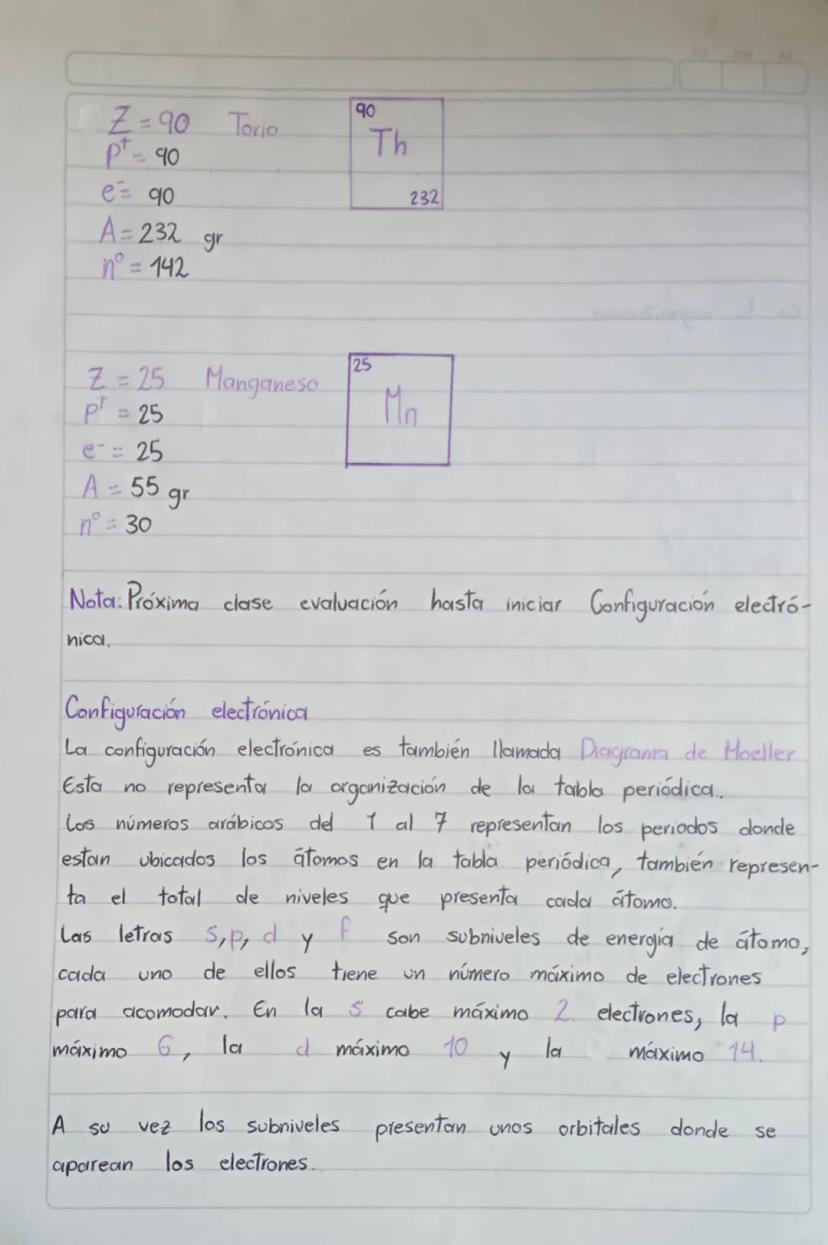 Z = 90 Torio
90
Th
232
p⁺ = 90
e⁻ = 90
A = 232 gr
n° = 142
Z = 25 Manganeso
25
Mn
p⁺ = 25
e⁻ = 25
A = 55 gr
n° = 30
Nota: Próxima clase evaluación hasta iniciar Configuración electró-
nica.
Configuración electrónica
La configuración electrónica es también llamada Diagrama de Moeller
Esta no representa la organización de la tabla periódica.
Los números arábicos del 1 al 7 representan los periodos donde
estan ubicados los átomos en la tabla periódica, también represen-
ta el total de niveles que presenta cada átomo.
Las letras s, p, d y f son subniveles de energía de átomo,
cada uno de ellos tiene un número máximo de electrones
para acomodar. En la s cabe máximo 2 electrones, la p
máximo 6, la d máximo 10 y la máximo 14.
A su vez los subniveles presentan unos orbitales donde se
aparean los electrones.